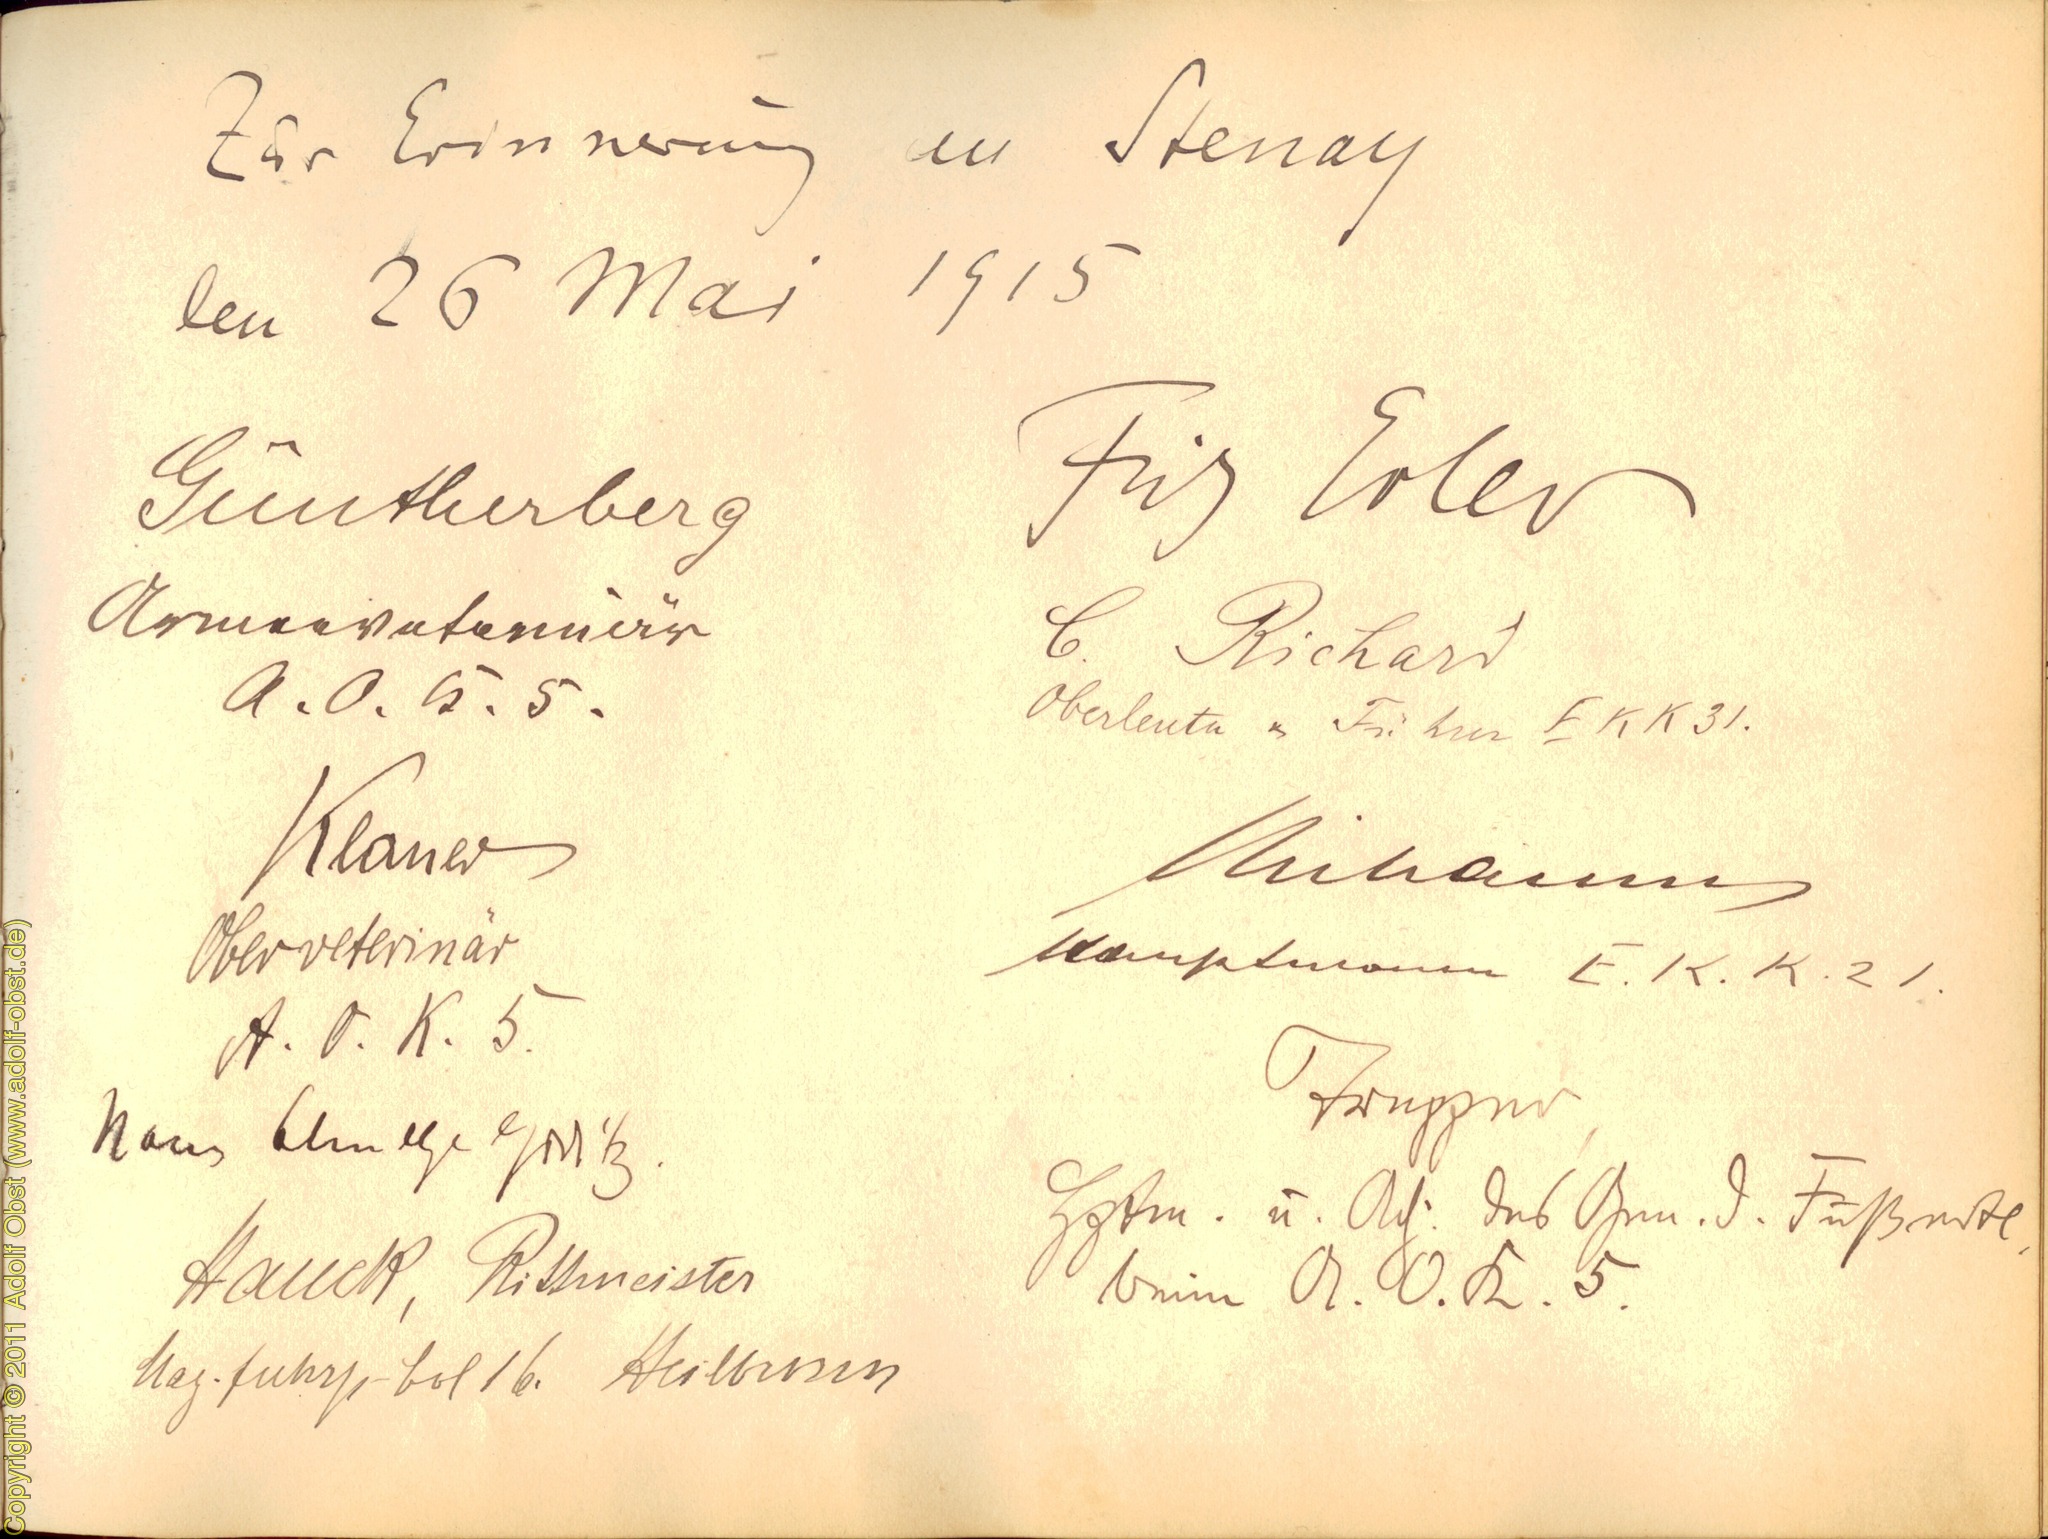 Zur Erinnerung an Stenay
den 26 Mai 1915
Güntherberg
Armeeveterinär
A. O. K. 5.
Klauer
Oberveterinär
A. O. K. 5.
Hans
Hauck, Rittmeister
Mag. fuhrp. kol 16. Heilbronn
Fritz Erler
C. Richard
Oberleutn u Führer E K K 31.
Hauptmann E. K. K. 21.
Hptm. u. Adj. des Gen. d. Fußarte,
beim A. O. K. 5.
Copyright © 2011 Adolf Obst (www.adolf-obst.de)